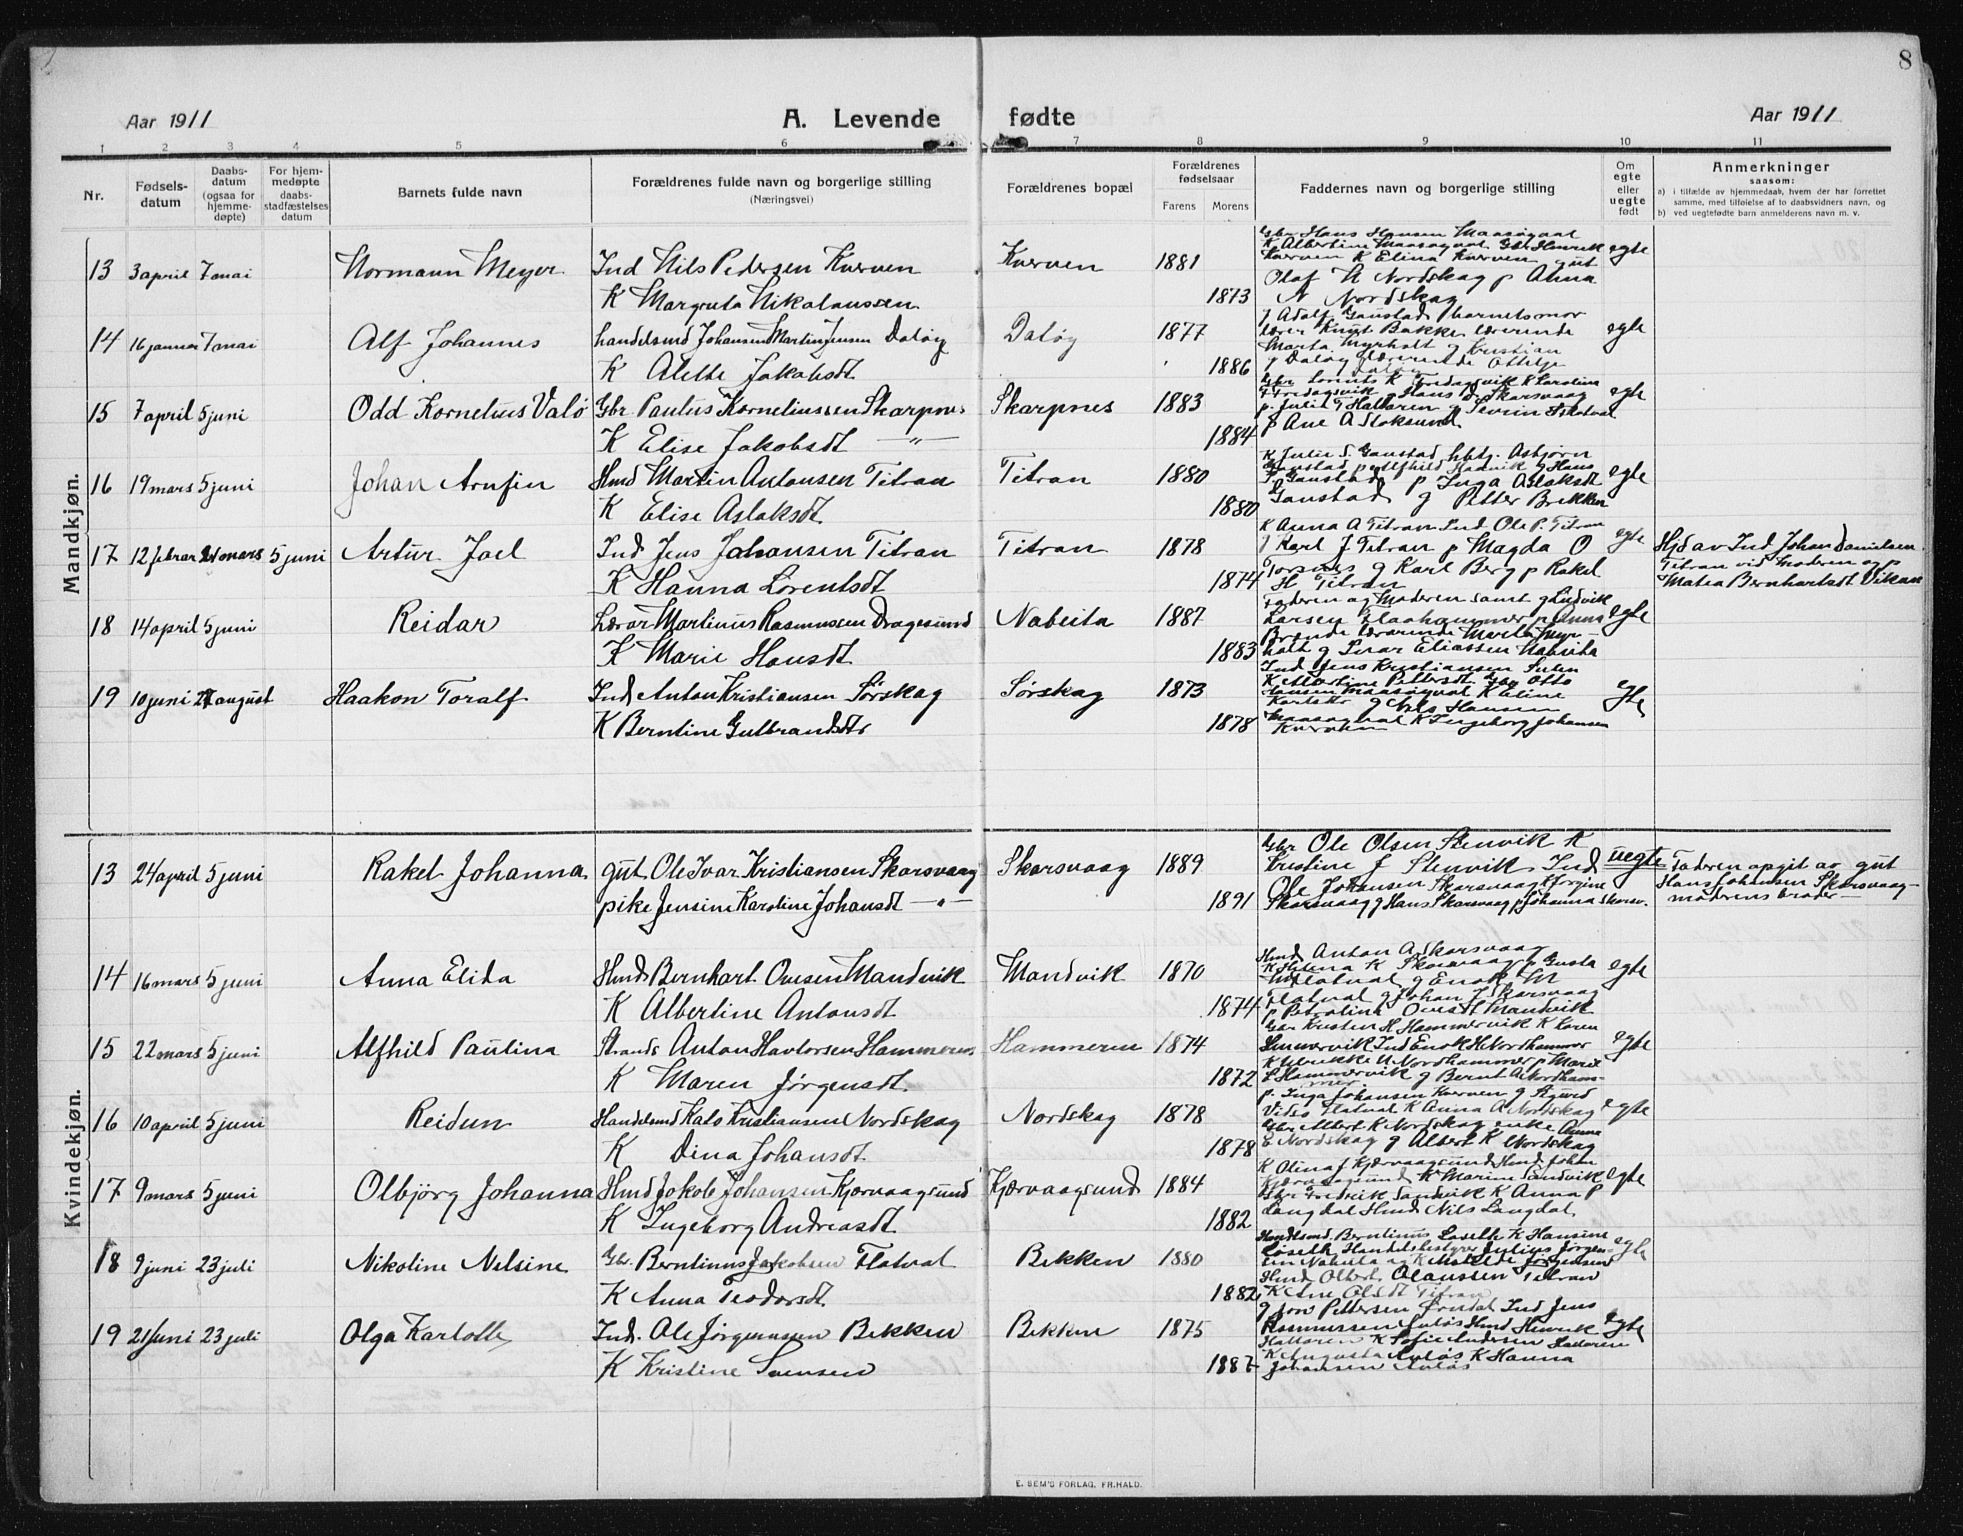 8
Aar 1911
A. Levende fødte
Aar 1911
1 2 3 4 5 6 7 8 9 10 11
Nr.
Fødsels-
datum
Daabs-
datum
(ogsaa for
hjemme-
døpte)
For hjem-
medøpte
daabs-
stadfæstelses
datum
Barnets fulde navn
Forældrenes fulde navn og borgerlige stilling
(Næringsvei)
Forældrenes bopæl
Forældrenes
fødselsaar
Farens Morens
Faddernes navn og borgerlige stilling
Om
egte
eller
uegte
født
Anmerkninger
saasom:
a) i tilfælde av hjemmedaab, hvem der har forrettet
samme, med tilføielse af to daabsvidners navn, og
b) ved uegtefødte barn anmelderens navn m. v.
Mandkjøn.
13 3 april 7 mai Normann Meyer Ind Nils Pedersen Kverven Kverven 1881 egte
K Margreta Nikolaussen 1873
Gbr Hans Hansen Maasøqval
K Albertine Maasøqval Gbr Henrik
Kverven K Elina Kverven gut
Olaf N Nordskag p Anna
N Nordskag
14 16 januar 7 mai Alf Johannes handelsmd Johansen Martin Jensen Daløy Daløy 1877 egte
K Alette Jakobsdt 1886
J Adolf Gaustad barnets mor
lærer Knut Bakke lærerinde
Marta Myrholt g Kristian
15 7 april 5 juni Odd Kornelius Valø Gbr. Paulus Korneliussen Skarpnes Skarpnes 1883 egte
K Elise Jakobsdt —"— 1884
p Ane A Stoksund
16 19 mars 5 juni Johan Arnfin Hmd Martin Antonsen Titran Titran 1880 egte
K Elise Aslaksdt 1880
Gaustad p Inga Aslaksdt
Gaustad g Petter Brekken
17 12 februar 21 mars 5 juni Artur Joel Ind Jens Johansen Titran Titran 1878 egte
K Hanna Lorentsdt 1874
K Anna A Titran Ind Ole P. Titran
J Karl J Titran p Magda O
Torsnes g Karl Berg p Rakel
H Titran
Hjd av Ind Johan Danielsen
Titran vid Moderen og p
Matea Bernhartsdt Vikan
18 14 april 5 juni Reidar Lærar Martinus Rasmussen Dragesund Nabeita 1887 egte
K Marie Hansdt 1883
Faderen og Moderen samt g Ludvik
Larsen Flaahammer p Anna
holt g Einar Eliassen Nabeita
19 10 juni 27 august Haakon Toralf Ind Anton Kristiansen Sørskag Sørskag 1873 egte
K Berntine Gulbrandsdt 1878
Ind Jens Kristiansen Sulen
K Albertine Pettersdt Gbr Otto
Hansen Maasøqval K Eline
g Nils Hansen
Maasøqval K Ingeborg Johansen
Kverven
Kvindekjøn.
13 24 april 5 juni Rakel Johanna gut Ole Ivar Kristiansen Skarsvaag Skarsvaag 1889 uegte
pike Jensine Karoline Johansdt —"— 1891
Gbr Ole Olsen Stenvik K
Kristine J Stenvik Ind
Ole Johansen Skarsvaag K Jorgine
Skarsvaag g Hans Skarsvaag p Johanna Skarsv.
Faderen opgit av gut
Hans Johansen Skarsvaag—
moderens broder—
14 16 mars 5 juni Anna Elida Hmd Bernhart Ovesen Mandvik Mandvik 1870 egte
K Albertine Antonsdt 1874
Hmd Anton A Skarsvaag
K Helena K Skarsvaag p Gusta
M Flatval g Enok M
Flatval g Johan J Skarsvaag
p Petrolina Ovesdt Mandvik
15 22 mars 5 juni Alfhild Paulina Strands Anton Havlorsen Hammeren Hammeren 1874 egte
K Maren Jørgensdt 1872
Gbr Kristen H Hammervik K Karen
Hammervik Ind Enok H Nordhammer
K Ulrikke N Nordhammer p Marie
L Hammervik g Bernt A Nordham-
mer.
16 10 april 5 juni Reidun Handelsmd Kato Kristiansen Nordskag Nordskag 1878 egte
K Dina Johansdt 1878
p. Inga Johansen Kverven g Sigurd
Flatval K Anna A Nordskag
Gbr Albert K Nordskag enke Anna
E Nordskag g Albert K Nordskag
17 9 mars 5 juni Olbjörg Johanna Hmd Jakob Johansen Kjørvaagsund Kjærvaagsund 1884 egte
K Ingeborg Andreasdt. 1882
K Olina J Kjærvaagsund Hmd Johan
Kjærvaagsund K Marine Sandvik
Gbr Fredrik Sandvik K Anna P
Langdal Hmd Nils Langdal,
18 9 juni 23 juli Nikoline Nelsine Gbr. Berntinus Jakobsen Flatval Bekken 1880 egte
K Anna Teodorsdt 1882
Handelsmd Berntinus Løseth K Hansine
Løseth Handelsbestyrer Julius Jørgen-
sen Nabeita og K Matelde Jørgensen
Hmd Olbert Olaussen Titran
K Ane Olsdt Titran
19 21 juni 23 juli Olga Karlotte Ind. Ole Jørgenssen Bekken Bekken 1875 egte
K Kristine Svensen 1887
g Jon Pettersen Ind Jens
Rasmussen Hmd Henrik
Hallaren K Sofie Andersen Hallaren
K Augusta K Hanna
Johansen
E. SEM'S FORLAG, FR.HALD.